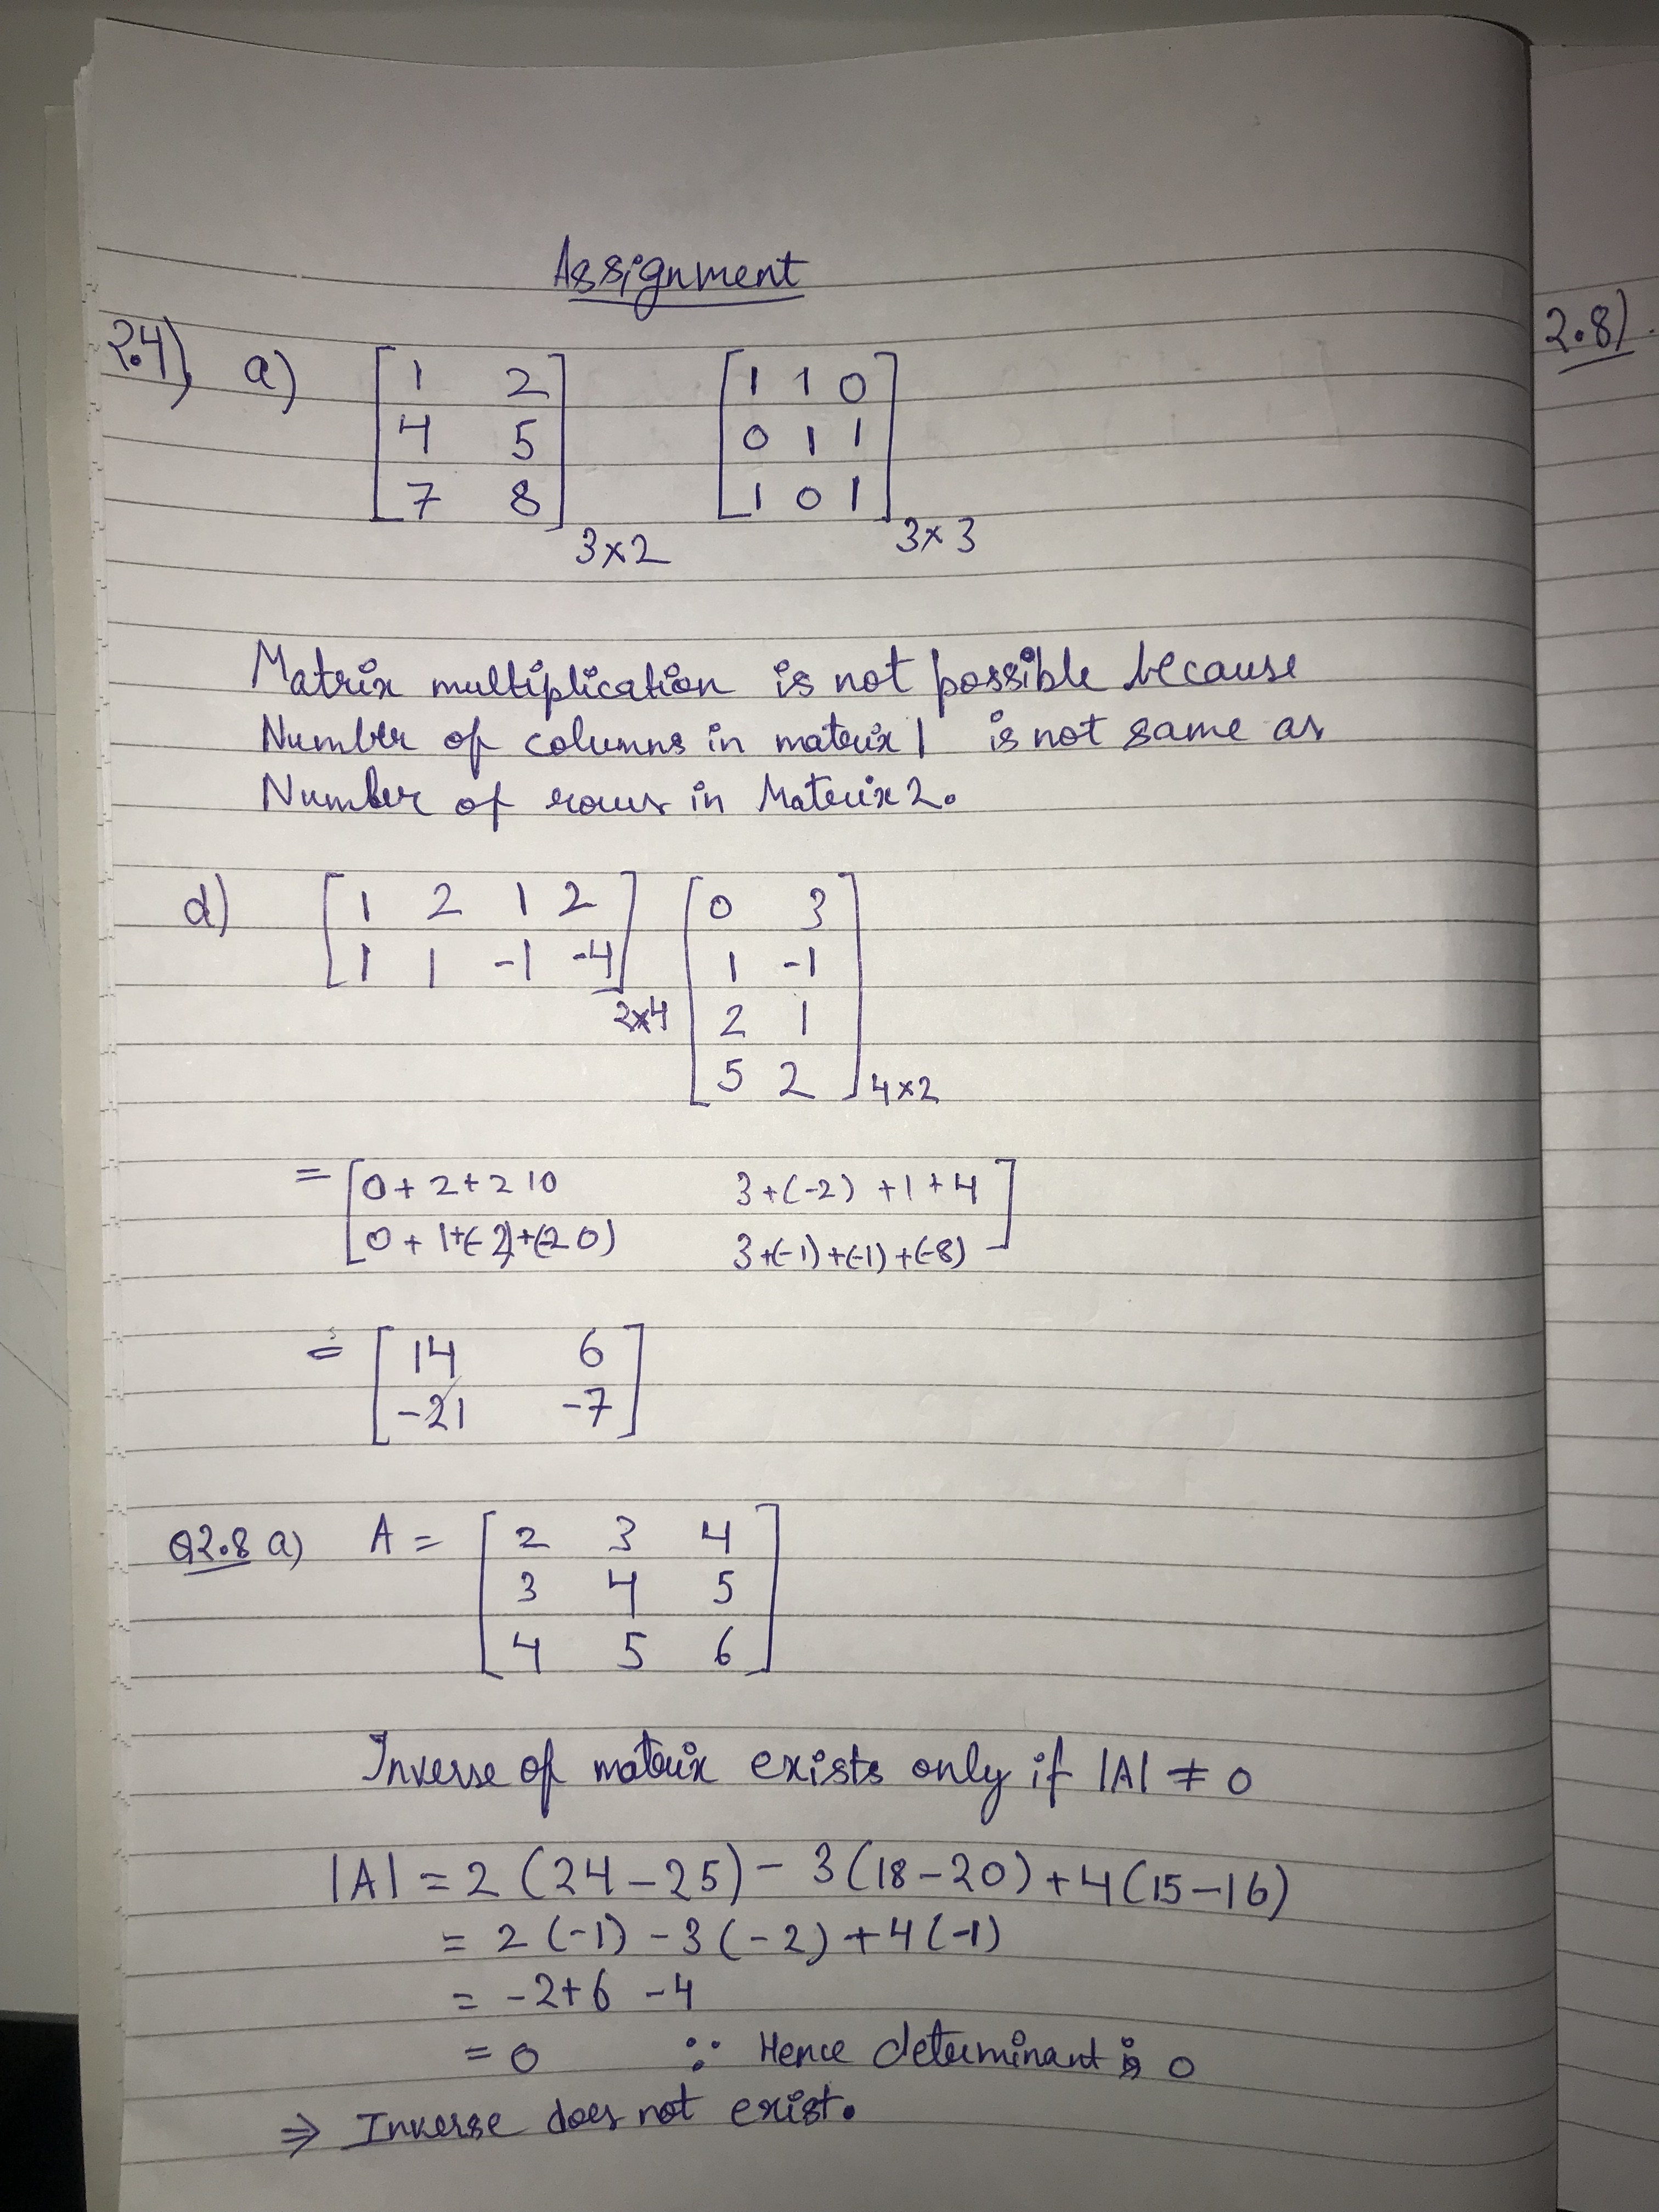 Assignment
2.4) a) [1 2] [1 1 0]
[4 5] [0 1 1]
[7 8] 3×2 [1 0 1] 3×3
Matrix multiplication is not possible because
Number of columns in matrix 1 is not same as
Number of rows in Matrix 2.
d) [1 2 1 2] [0 3]
[1 1 -1 -4] 2×4 [1 -1]
[2 1]
[5 2] 4×2
= [0+2+2 10 3+(-2)+1+4]
[0+1+(-2)+(-20) 3+(-1)+(-1)+(-8)]
= [14 6]
[-21 -7]
Q2.8 a) A = [2 3 4]
[3 4 5]
[4 5 6]
Inverse of matrix exists only if |A| ≠ 0
|A| = 2(24-25) - 3(18-20) + 4(15-16)
= 2(-1) - 3(-2) + 4(-1)
= -2+6 -4
= 0 ∵ Hence determinant is 0
⇒ Inverse does not exist.
2.8)